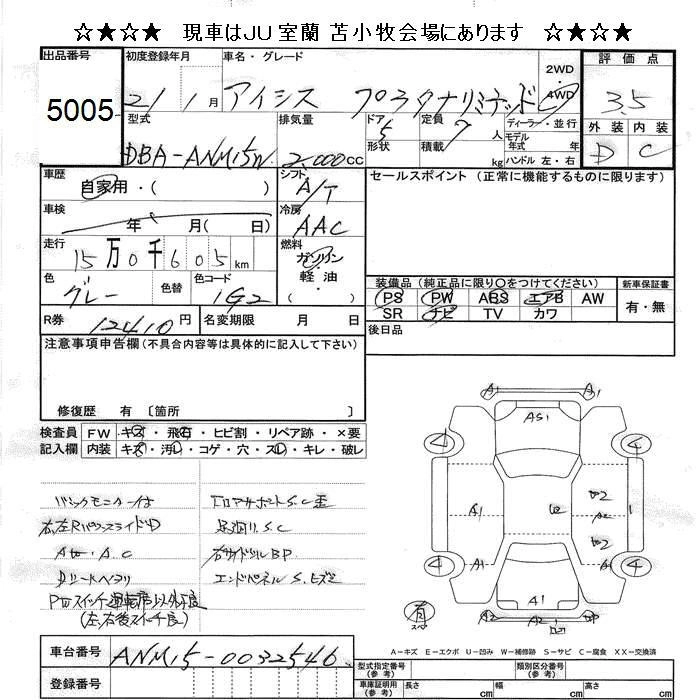 ☆★☆★ 現車はJU室蘭 苫小牧会場にあります ☆★☆★
出品番号
5005
初度登録年月
21/1月
車名・グレード
アイシス プラタナリミテッド
2WD
4WD
評価点
3.5
型式
DBA-ANM15W
排気量
2000cc
ドア 5
形状
定員 7人
積載 kg
ディーラー・並行
モデル
年式 年
ハンドル 左・右
外装 内装
D C
車歴
自家用・( )
シフト
A/T
セールスポイント (正常に機能するものに限ります)
車検
年 月( 日)
冷房
AAC
走行
15万0千605km
燃料
ガソリン
軽・油
( )
色
グレー
色替
色コード
1G2
装備品 (純正品に限り○をつけてください)
新車保証書
PS PW ABS エアB AW
有・無
SR ナビ TV カワ
R券
12410円
名変期限 月 日
後日品
注意事項申告欄(不具合内容等は具体的に記入して下さい)
修復歴 有 〔箇所 〕
検査員
記入欄
FW キズ・飛石・ヒビ割・リペア跡・×要
内装 キズ・汚レ・コゲ・穴・スレ・キレ・破レ
バックモニター付
右、左Rパワースライド
A
A1
A1
AS1
4
4
A1
U2
U2
A2
U2
1
A1
A1
4
4
A1
A2
A2
有
A-キズ E-エクボ U-凹み W-補修跡 S-サビ C-腐食 XX-交換済
コアサポートS.C歪
足廻り S.C
右サイドシルBP
エンドパネル S.ヒズミ
PWスイッチ運転席以外不良
(左、右後スイッチ良)
車台番号
ANM15-0032546
登録番号
型式指定番号
(参考)
類別区分番号
(参考)
車庫証明用
(参考)
長さ cm
幅 cm
高さ cm